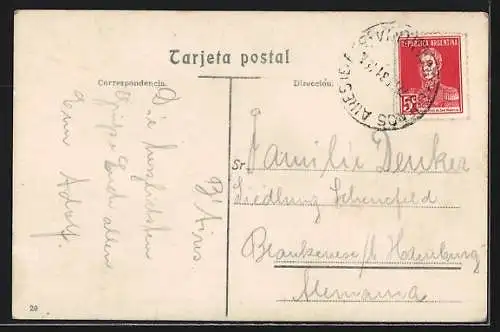 Tarjeta postal
Correspondencia.
Dirección:
REPUBLICA ARGENTINA
5c
BUENOS AIRES
Bs' Aires
Die herzlichsten
Grüße Euch allen
Euer Adolf.
Sr. Familie Denker
Siedlung Schenefeld
Blankenese /b Hamburg
Alemania
29